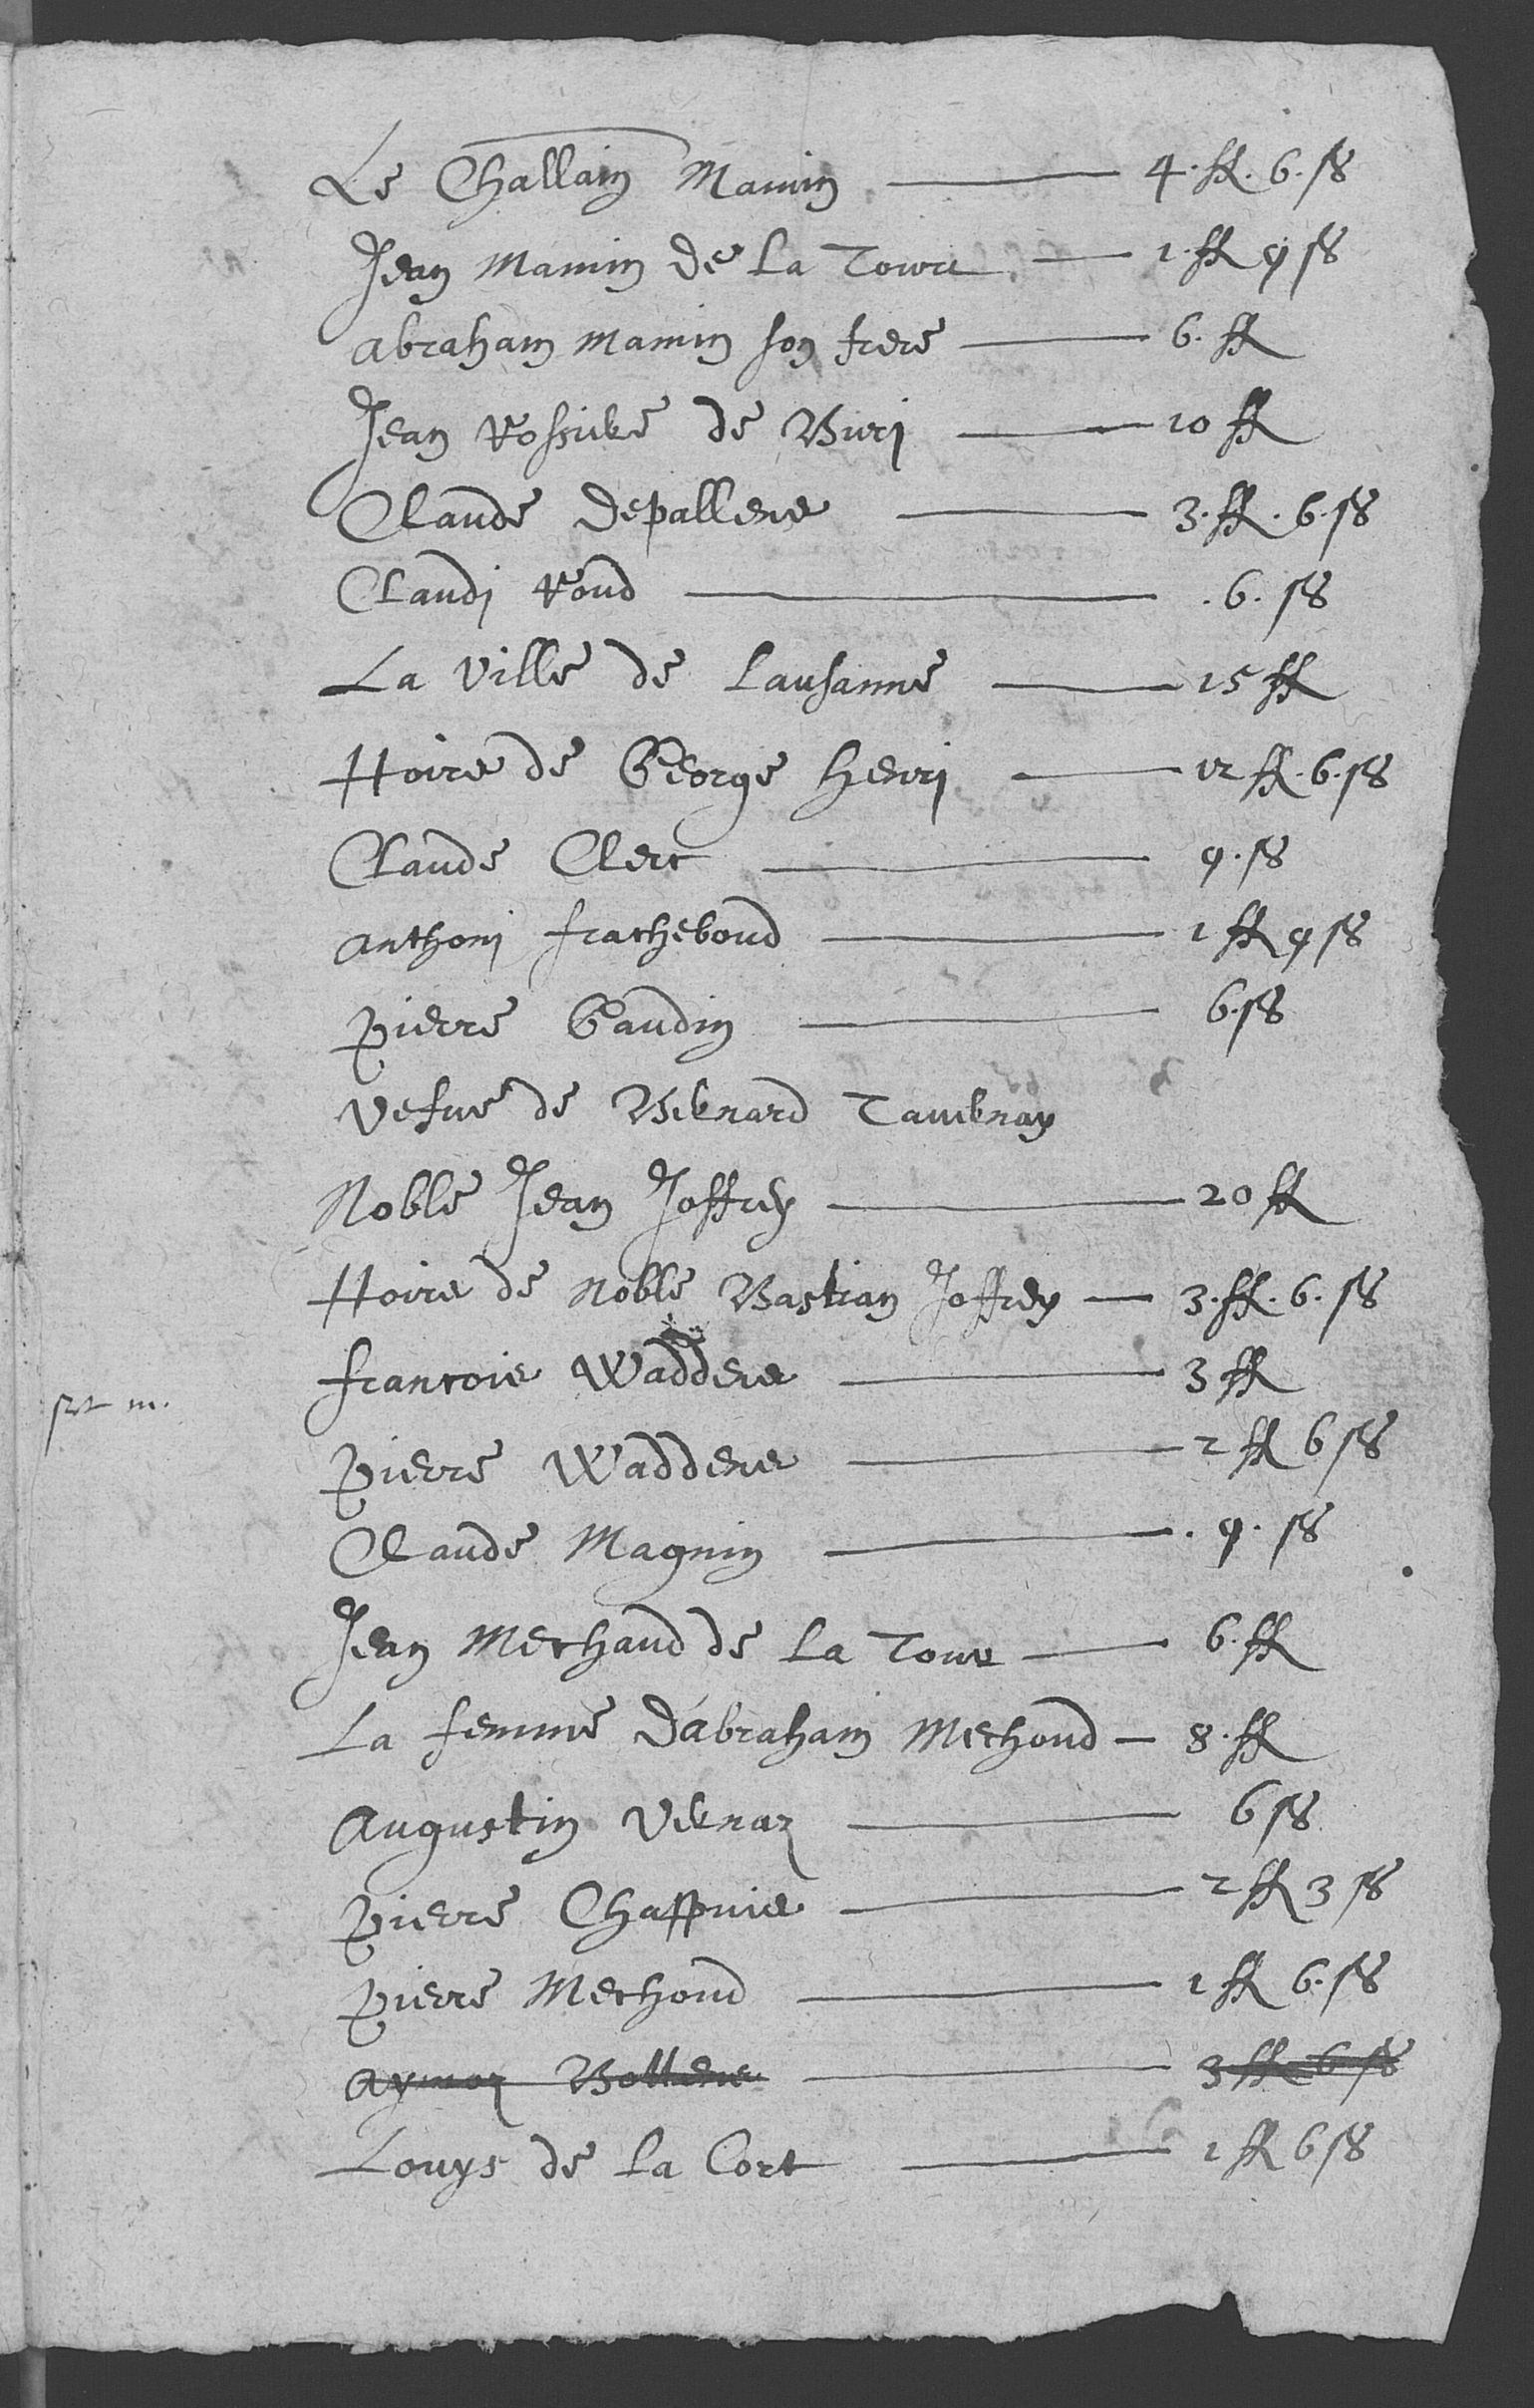 Le Challain Mamin —— 4. ff. 6. ss
Jean Mamin de la Tour —— 1. ff 9 ss
Abraham Mamin son frere —— 6. ff
Jean Rossier de Buri —— 10 ff
Claude Depallens —— 3. ff. 6. ss
Claudi Roud —— . 6. ss
La Ville de Lausanne —— 15 ff
Hoirs de George Henri —— 12 ff. 6. ss
Claude Clerc —— 9. ss
Anthoni fracheboud —— 1 ff 9 ss
Pierre Gaudin —— 6. ss
Vefue de Bernard Tavernay
Noble Jean Joffrey —— 20 ff
Hoirs de Noble Bastian Joffrey — 3. ff. 6. ss
francois Waddens —— 3 ff
Pierre Waddens —— 2 ff 6 ss
Claude Magnin —— . 9. ss
Jean Mechaud de la Tour —— 6. ff
La femme d'abraham Mechoud — 8. ff
Augustin Vernaz —— 6 ss
Pierre Chappuis —— 2 ff 3 ss
Pierre Mechoud —— 1 ff 6. ss
Aymoz Bottens —— 3 ff 6 ss
Louys de la Cort —— 1 ff 6 ss